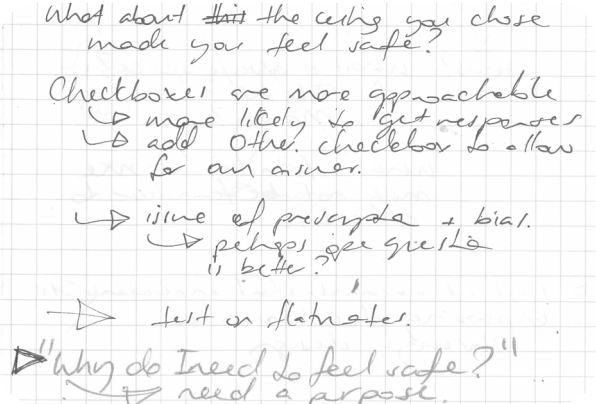 What about the ceiling you chose
made you feel safe?
Checkboxes are more approachable
↳ more likely to get responses
↳ add Other. checkbox to allow
for an answer.
↳ issue of + bias.
↳ perhaps open question
is better?
→ test on flatmates.
"Why do I need to feel safe?"
↳ need a purpose.